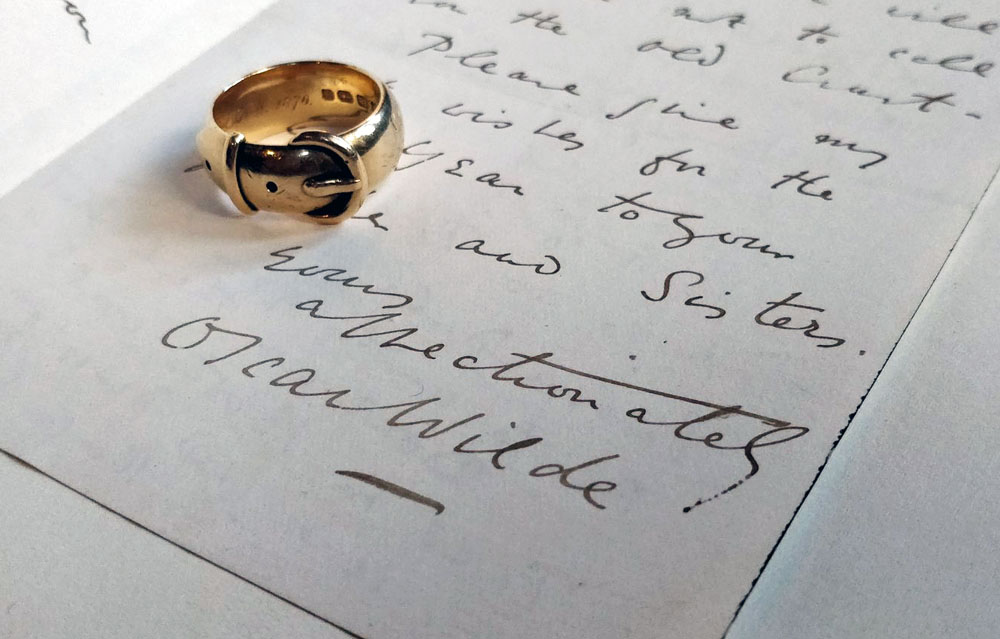 will
not to call
on the old Court-
Please give my
wishes for the
Year to your
and Sisters.
yours
affectionately
Oscar Wilde